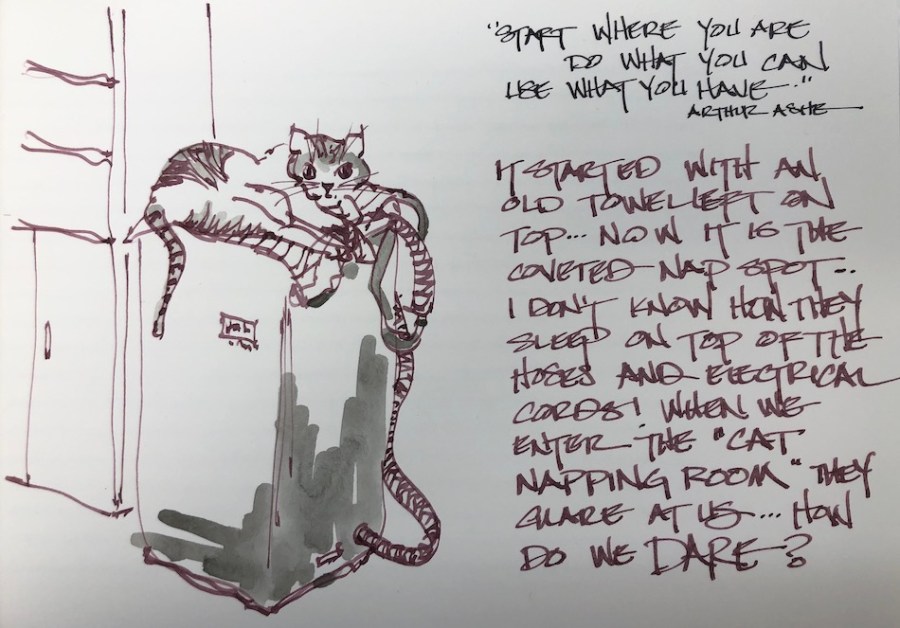 "START WHERE YOU ARE
DO WHAT YOU CAN
USE WHAT YOU HAVE."
ARTHUR ASHE
IT STARTED WITH AN
OLD TOWEL LEFT ON
TOP... NOW IT IS THE
COVETED NAP SPOT...
I DON'T KNOW HOW THEY
SLEEP ON TOP OF THE
HOSES AND ELECTRICAL
CORDS! WHEN WE
ENTER THE "CAT
NAPPING ROOM" THEY
GLARE AT US... HOW
DO WE DARE?